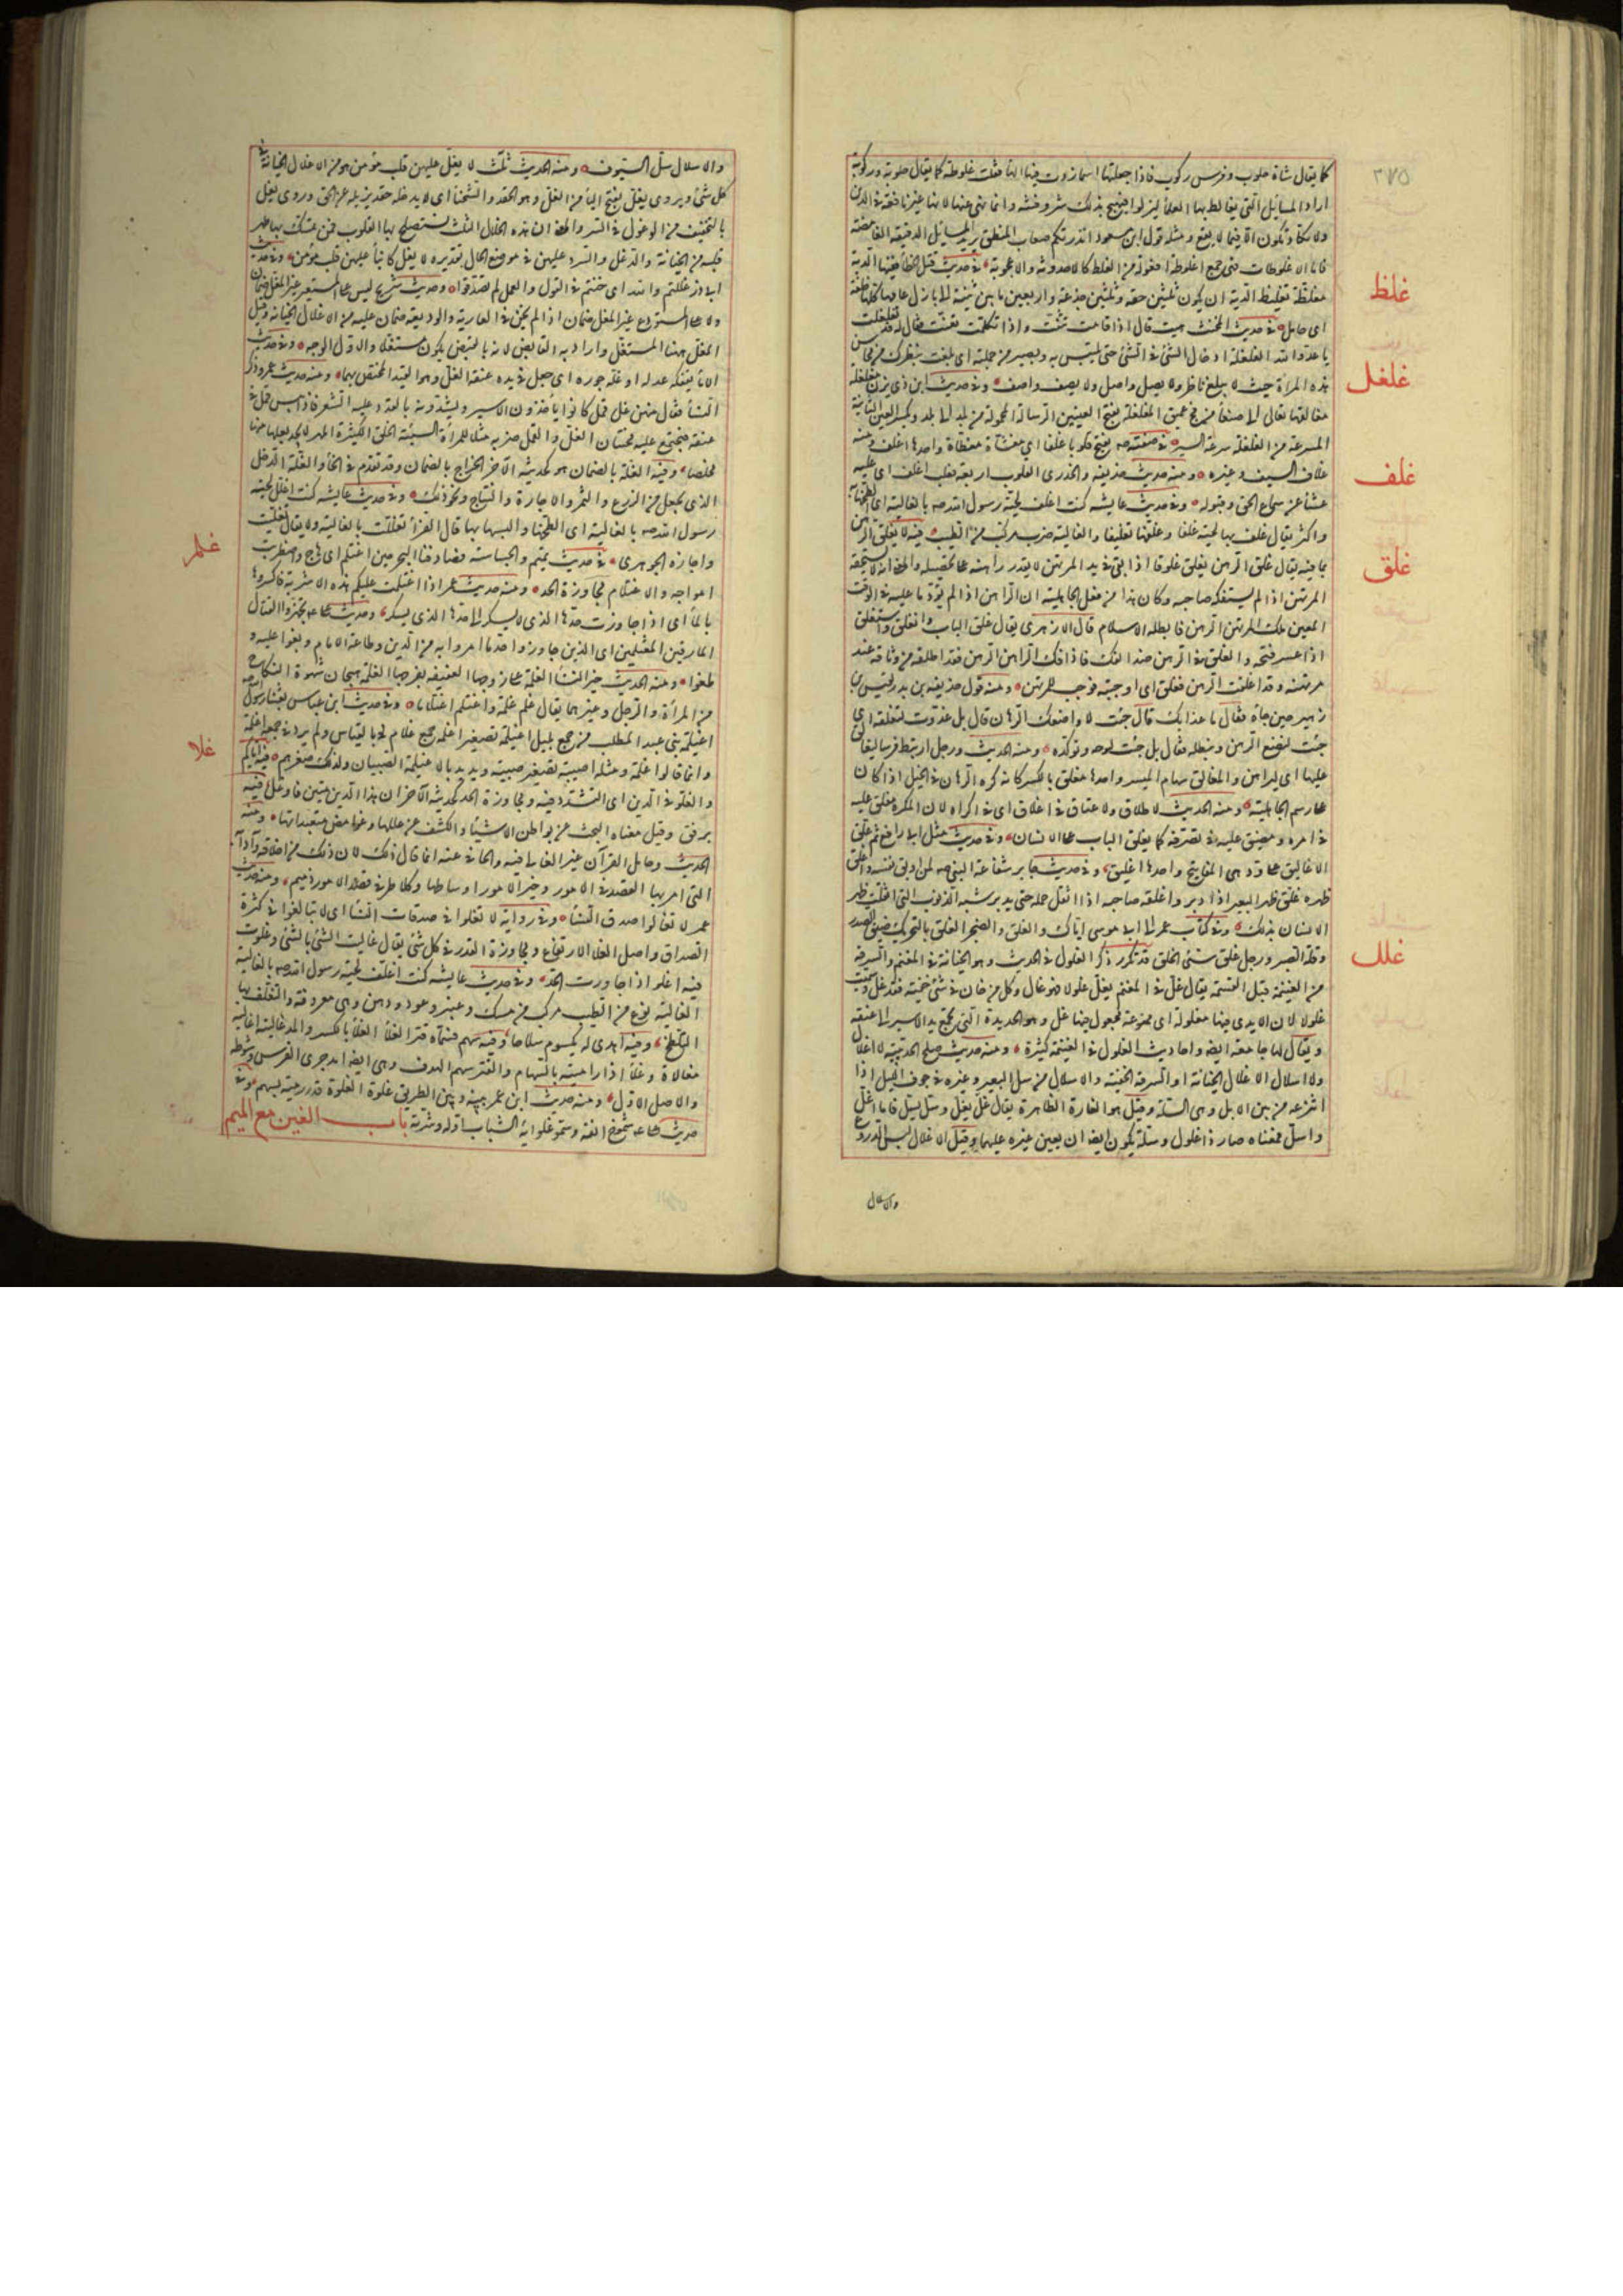 ٢٧٥
كما يقال شاة حلوب وفرس ركوب فاذا جعلتها اسما زدت فيها الهاء فقلت غلوطة كما يقال حلوبة وركوبة
اراد المسائل التي يغالط بها العلماء ليزلوا فيهيج بذلك شر وفتنة وانما نهى عنها لانها غير نافعة في الدين
ولا تكاد تكون الا فيما لا يقع ومثله قول ابن مسعود انذرتكم صعاب المنطق يريد المسائل الدقيقة الغامضة
فاما الاغلوطات فهي جمع اغلوطة افعولة من الغلط كالاحدوثة والاعجوبة في حديث قتل الخطأ ففيها الدية
غلظ
مغلظة تغليظ الدية ان يكون ثلثين حقة وثلثين جذعة واربعين ما بين ثنية الى بازل عامها كلها خلفة
اى حامل في حديث المخنث هيت قال اذا قامت تثنت واذا تكلمت تغنت فقال له قد تغلغلت
يا عدو الله الغلغلة ادخال الشئ في الشئ حتى يلتبس به ويصير من جملته اى بلغت بنظرك من محاسن
غلغل
هذه المرأة حيث لا يبلغ ناظر ولا يصل واصل ولا يصف واصف وفي حديث ابن ذى يزن مغلغلة
مغالقها تعالى الى صنعاء من فج عميق المغلغلة بفتح الغينين الرسالة المحمولة من بلد الى بلد وبكسر الغين الثانية
المسرعة من الغلغلة سرعة السير في صفته صم يفتح قلوبا غلفا اى مغشاة مغطاة واحدها اغلف ومنه
غلف
غلاف السيف وغيره ومنه حديث حذيفة والخدرى القلوب اربعة فقلب اغلف اى عليه
غشاء عن سماع الحق وقبوله وفي حديث عايشة كنت اغلف لحية رسول الله صم بالغالية اى الطخها به
واكثر يقال غلف بها لحيته غلفا وغلفها تغليفا والغالية ضرب مركب من الطيب فيه لا يغلق الرهن
غلق
بما فيه يقال غلق الرهن يغلق غلوقا اذا بقي في يد المرتهن لا يقدر راهنه على تخليصه والمعنى انه لا يستحقه
المرتهن اذا لم يستفكه صاحبه وكان هذا من فعل الجاهلية ان الراهن اذا لم يؤد ما عليه في الوقت
المعين ملك المرتهن الرهن فابطله الاسلام قال الازهرى يقال غلق الباب وانغلق واستغلق
اذا عسر فتحه والغلق في الرهن ضد الفك فاذا فك الراهن الرهن فقد اطلقه من وثاقه عند
مرتهنه وقد اغلقت الرهن فغلق اى اوجبته فوجب للمرتهن ومنه قول حذيفة بن بدر لقيس بن
زهير حين جاءه فقال ما غدا بك قال جئت لاواضعك الرهان قال بل غدوت لتغلقه اى
جئت لتضع الرهن وتبطله فقال بل جئت لاوجبه وتوكده ومنه الحديث ورجل ارتبط فرسا ليغالق
عليها اى ليراهن والمغالق سهام الميسر واحدها مغلق بالكسر كانه كره الرهان في الخيل اذا كان
على رسم الجاهلية ومنه الحديث لا طلاق ولا عتاق في اغلاق اى في اكراه لان المكره مغلق عليه
في امره ومضيق عليه في تصرفه كما يغلق الباب على الانسان وفي حديث مقتل ابى رافع ثم علق
الاغاليق على ود هى المفاتيح واحدها اغليق وفي حديث جابر شفاعة النبى صم لمن اوبق نفسه واغلق
ظهره غلق ظهر البعير اذا دبر واغلقه صاحبه اذا اثقل حمله حتى يدبر شبه الذنوب التي اثقلت ظهر
الانسان بذلك وفي كتاب عمر الى ابى موسى اياك والغلق والضجر الغلق بالتحريك ضيق الصدر
وقلة الصبر ورجل غلق سيئ الخلق قد تكرر ذكر الغلول في الحديث وهو الخيانة في المغنم والسرقة
غلل
من الغنيمة قبل القسمة يقال غل في المغنم يغل غلولا فهو غال وكل من خان في شئ خفية فقد غل وسميت
غلولا لان الايدى فيها مغلولة اى ممنوعة مجعول فيها غل وهو الحديدة التي تجمع يد الاسير الى عنقه
ويقال لها جامعة ايضا واحاديث الغلول في الغنيمة كثيرة ومنه حديث صلح الحديبية لا اغلال
ولا اسلال الاغلال الخيانة او السرقة الخفية والاسلال من سل البعير وغيره في جوف الليل اذا
انتزعه من بين الابل وهى السلة وقيل هو الغارة الظاهرة يقال غل يغل وسل يسل فاما اغل
واسل فمعناه صار ذا غلول وسلة ويكون ايضا ان يعين غيره عليهما وقيل الاغلال لبس الدروع
والاسلال
والاسلال سل السيوف ومنه الحديث ثلث لا يغل عليهن قلب مؤمن هو من الاغلال الخيانة في
كل شئ ويروى يغل بفتح الياء من الغل وهو الحقد والشحناء اى لا يدخله حقد يزيله عن الحق وروى يغل
بالتخفيف من الوغول في الشر والمعنى ان هذه الخلال الثلث تستصلح بها القلوب فمن تمسك بها طهر
قلبه من الخيانة والدغل والشر وعليهن في موضع الحال تقديره لا يغل كائنا عليهن قلب مؤمن وفي حديث
ابى ذر غللتم والله اى خنتم في القول والعمل لم تصدقوا وحديث شريح ليس على المستعير غير المغل ضمان
ولا على المستودع غير المغل ضمان اذا لم يخن في العارية والوديعة فلا ضمان عليه من الاغلال الخيانة وقيل
المغل ههنا المستغل واراد به القابض لانه بالقبض يكون مستغلا والاول الوجه وفي حديث
الامارة فكه عدله او غله جوره اى جعل في يده عنقه الغل وهو القيد المختص بهما ومنه حديث عمر وذكر
النساء فقال منهن غل قمل كانوا يأخذون الاسير ويشدونه بالقد وعليه الشعر فاذا يبس قمل في
عنقه فتجتمع عليه محنتان الغل والقمل ضربه مثلا للمرأة السيئة الخلق الكثيرة المهر لا يجد بعلها منها
مخلصا وفيه الغلة بالضمان هو كحديثه الآخر الخراج بالضمان وقد تقدم في الخاء والغلة الدخل
الذى يحصل من الزرع والثمر والاجارة والنتاج ونحو ذلك وفي حديث عايشة كنت اغلل لحية
رسول الله صم بالغالية اى الطخها والبسها بها قال الفراء تغللت بالغالية ولا يقال تغليت
واجازه الجوهرى في حديث تميم والجساسة فصادفنا البحر حين اغتلم اى هاج واضطربت
غلم
امواجه والاغتلام مجاوزة الحد ومنه حديث عمر اذا اغتلمت عليكم هذه الاشربة فاكسروها
بالماء اى اذا جاوزت حدها الذى لا يسكر الى حدها الذى يسكر وحديث على تجهزوا لقتال
المارقين المغتلمين اى الذين جاوزوا حد ما امروا به من الدين وطاعة الامام وبغوا عليه و
طغوا ومنه الحديث خير النساء الغلمة على زوجها العفيفة بفرجها الغلمة هيجان شهوة النكاح
من المرأة والرجل وغيرهما يقال غلم غلمة واغتلم اغتلاما وفي حديث ابن عباس بعثنا رسول الله صم
اغيلمة بنى عبد المطلب من جمع بليل اغيلمة تصغير اغلمة جمع غلام في القياس ولم يرد في جمعه اغلمة
وانما قالوا غلمة ومثله اصيبية تصغير صبية ويريد بالاغيلمة الصبيان ولذلك صغرهم فيه اياكم
غلا
والغلو في الدين اى التشدد فيه ومجاوزة الحد كحديثه الآخر ان هذا الدين متين فاوغل فيه
برفق وقيل معناه البحث عن بواطن الاشياء والكشف عن عللها وغوامض متعبداتها ومنه
الحديث وحامل القرآن غير الغالى فيه والجافى عنه انما قال ذلك لان ذلك من اخلاقه وآدابه
التى امر بها القصد في الامور وخير الامور اوساطها وكلا طرفى قصد الامور ذميم ومنه حديث
عمر لا تغالوا صدق النساء وفي رواية لا تغلوا في صدقات النساء اى لا تبالغوا في كثرة
الصداق واصل الغلاء الارتفاع ومجاوزة القدر في كل شئ يقال غاليت الشئ بالشئ وغلوت
فيه اغلو اذا جاوزت الحد وفي حديث عايشة كنت اغلف لحية رسول الله صم بالغالية
الغالية نوع من الطيب مركب من مسك وعنبر وعود ودهن وهى معروفة والتغلف بها
التلطخ وفيه اهدى له يكسوم سلاحا وفيه سهم فسماه قتر الغلاء الغلاء بالكسر والمد غاليته اغاليه
مغالاة وغلاء اذا راميته بالسهام والقتر سهم الهدف وهى ايضا امد جرى الفرس وشوطه
والاصل الاول ومنه حديث ابن عمر بينه وبين الطريق غلوة الغلوة قدر رمية بسهم وفي
حديث على شموخ انفه وسمو غلوائه الشباب اوله وشرته باب الغين مع الميم